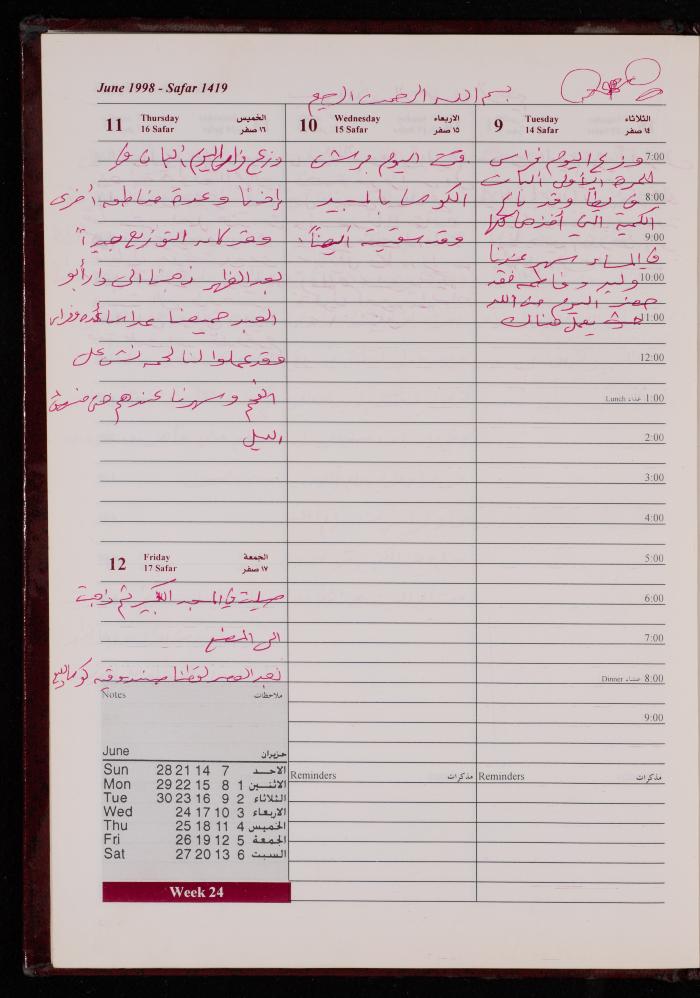 June 1998 - Safar 1419
بسم الله الرحمن الرحيم
الثلاثاء
١٤ صفر
9 Tuesday
14 Safar
وزع اليوم فراس
للمرة الأولى ألبان
في يطا وقد باع
الكمية التي أخذها كلها
في المساء سهر عندنا
وليد و فاطمه فقد
حضر اليوم
يعمل هناك
7:00
8:00
9:00
10:00
11:00
12:00
Lunch غداء 1:00
2:00
3:00
4:00
5:00
6:00
7:00
Dinner عشاء 8:00
9:00
Reminders مذكرات
الاربعاء
١٥ صفر
10 Wednesday
15 Safar
قمت اليوم برش
الكوسا بالمبيد
وقد سقيته أيضاً.
Reminders مذكرات
الخميس
١٦ صفر
11 Thursday
16 Safar
وزع فراس اليوم ألبان في
إذنا وعدة مناطق أخرى
وقد كان التوزيع جيداً
بعد الظهر ذهبنا الى دار أبو
العبد جميعنا عدا
وقد عملوا لنا لحمه نش على
الفحم وسهرنا عندهم حتى
الليل
الجمعة
١٧ صفر
12 Friday
17 Safar
صليت في المسجد الكبير ثم ذهبت
الى المصنع
بعد العصر لقطنا صندوقه كوسا
Notes ملاحظات
June حزيران
Sun 28 21 14 7 الاحد
Mon 29 22 15 8 1 الاثنين
Tue 30 23 16 9 2 الثلاثاء
Wed 24 17 10 3 الاربعاء
Thu 25 18 11 4 الخميس
Fri 26 19 12 5 الجمعة
Sat 27 20 13 6 السبت
Week 24